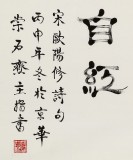 自
宋歐陽修詩句
丙申年冬於京華
石齋主書